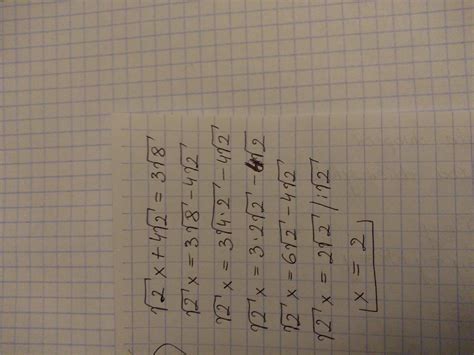 √2 x + 4√2 = 3√8
√2 x = 3√8 - 4√2
√2 x = 3√4·2 - 4√2
√2 x = 3·2√2 - 4√2
√2 x = 6√2 - 4√2
√2 x = 2√2 /:√2
x = 2